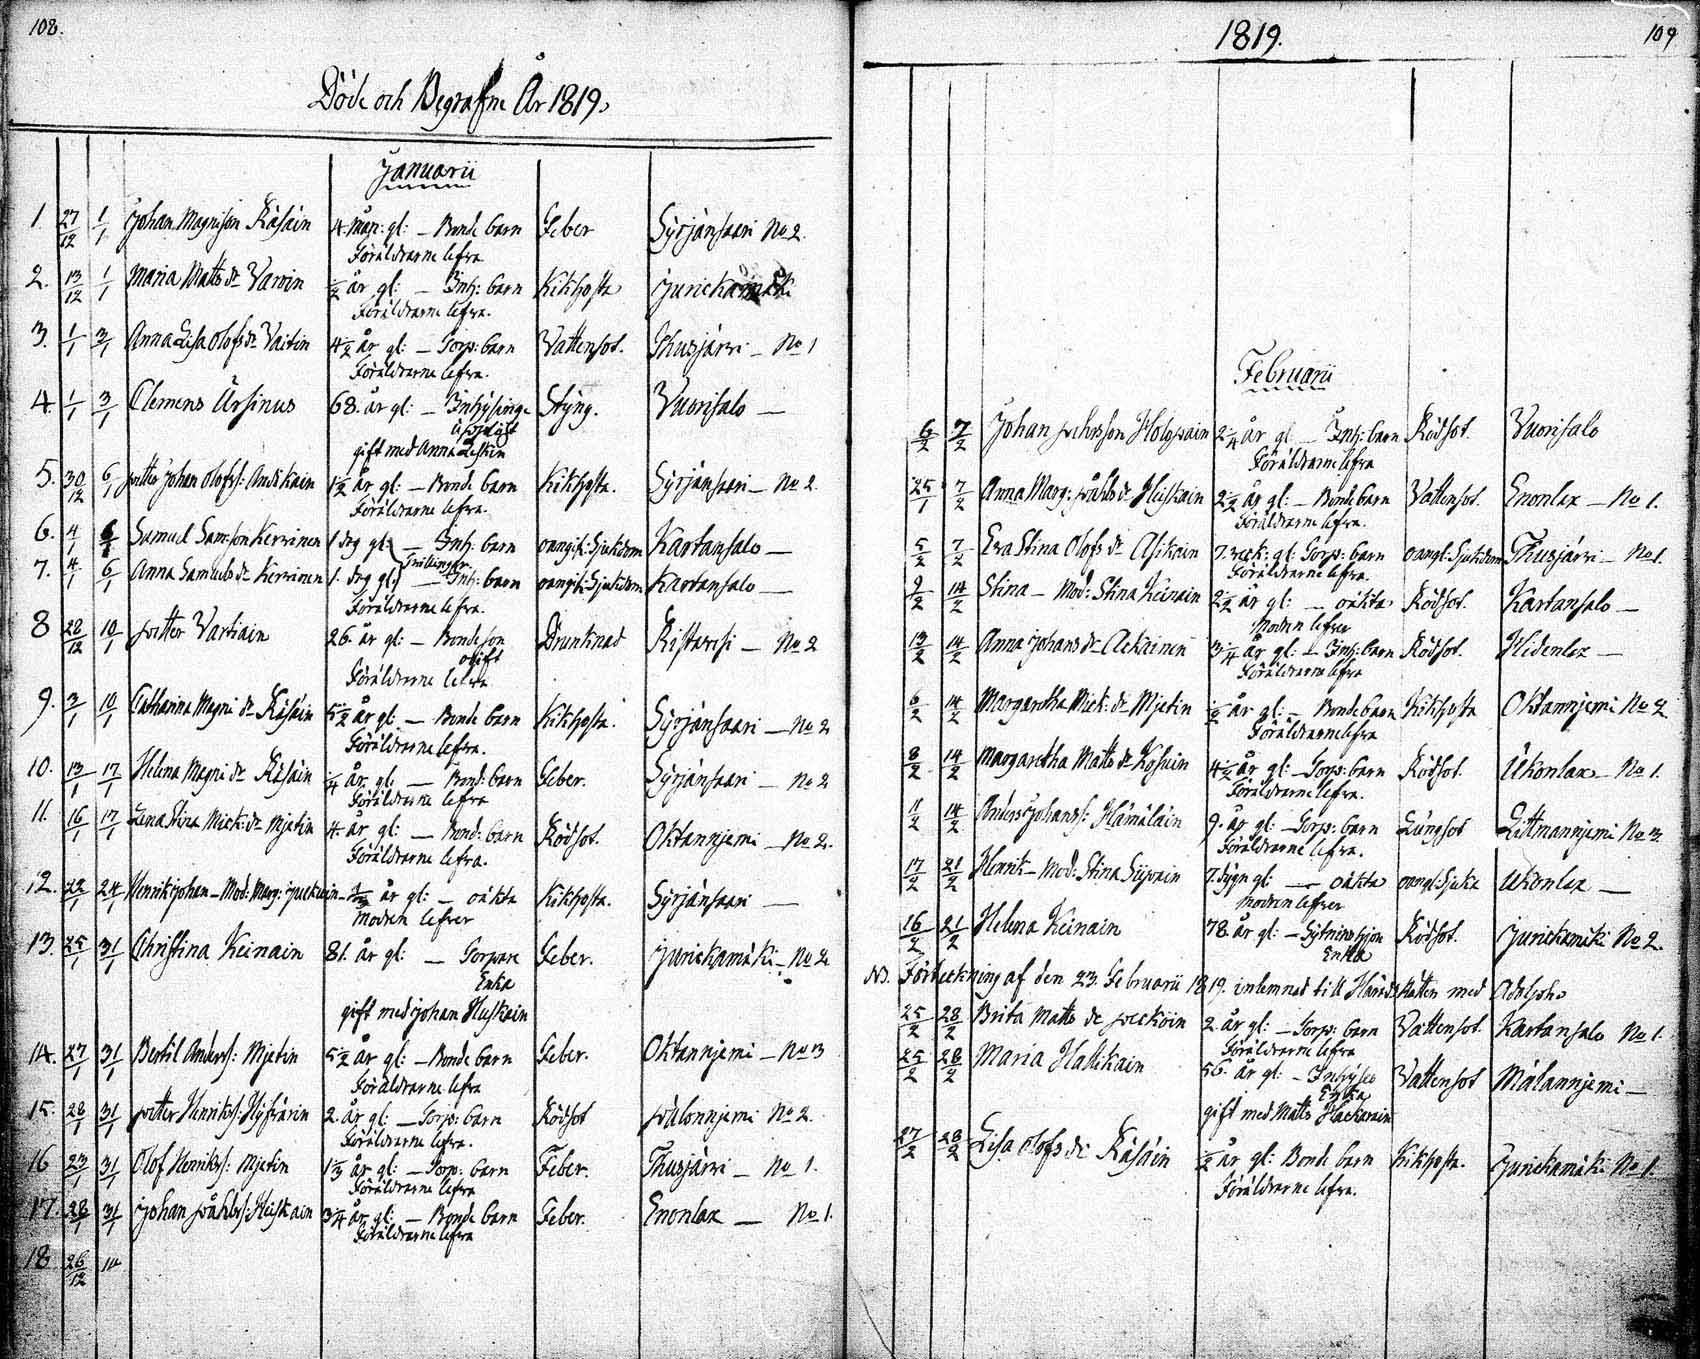 108.
Döde och Begrafne År 1819.
Januarii
1 27/12 1/1 Johan Magnison Räsäin 4 mån: gl: – Bonde barn Feber Syrjänsaari No 2.
Föräldrarne lefva
2. 13/12 1/1 Maria Matts dr Varvin 1/2 år gl: – Inh: barn Kikhosta Jurickamäki
Föräldrarne lefva.
3. 1/1 3/1 Anna Lisa Olofs dr Vaitin 4 1/2 år gl: – Torp: barn Vattensot. Thusjärvi – No 1
Föräldrarne lefva.
4. 1/1 3/1 Clemens Ursinus 68. år gl: – Inhysinge Styng. Vuorisalo –
gift med Anna Leskin
5. 30/12 6/1 Petter Johan Olofs: Andikain 1 1/2 år gl: – Bonde barn Kikhosta. Syrjänsaari – No 2.
Föräldrarne lefva.
6. 4/1 6/1 Samuel Sam:son Kervinen 1 dag gl: – Inh. barn oangif: Sjukdom Kartansalo –
Tvillingar
7. 4/1 6/1 Anna Samuels dr Kervinen 1. dag gl: – Inh: barn oangif: Sjukdom Kartansalo –
Föräldrarne lefva.
8 28/12 10/1 Petter Vartiain 26. år gl: – Bonde son Drunknad Ristavesi – No 2
ogift
Föräldrarne lefva
9. 3/1 10/1 Catharina Magni dr Räsäin 5 1/2 år gl: – Bonde barn Kikhosta. Syrjänsaari – No 2
Föräldrarne lefva.
10. 13/1 17/1 Helena Magni dr Räsäin 1/4 år. gl: – Bond: barn Feber. Syrjänsaari – No 2
Föräldrarne lefva
11. 16/1 17/1 Lena Stina Mick: dr Mjetin 4. år gl: – Bond: barn Rödsot. Oktanniemi – No 2.
Föräldrarne lefva.
12. 22/1 24/1 Henrik Johan – Mod: Marg: år gl: – oäkta Kikhosta. Syrjänsaari –
modren lefver
13. 25/1 31/1 Christina Keinain 81. år gl: – Torpare Feber. Jurickamäki – No 2
Enka
gift med Johan Huskain
14. 27/1 31/1 Bertil Anders: Mjetin 5 1/2 år gl: – Bonde barn Feber. Oktanniemi – No 3
Föräldrarne lefva
15. 28/1 31/1 Petter Henriks: Hyfvärin 2. år. gl: – Torp: barn Rödsot Pälonniemi No 2.
Föräldrarne lefva.
16 23/1 31/1 Olof Henriks: Mjetin 1 1/3 år gl: – Torp: barn Feber. Thusjärvi – No 1.
Föräldrarne lefva
17. 28/1 31/1 Johan Påhls: Heiskain 3/4 år. gl: – Bonde barn Feber. Enonlax – No 1.
Föräldrarne lefva
18 26/12
1819.
109
Februarii
6/2 7/2 Johan Holopain 2 1/4 år gl – Inh: barn Rödsot. Vuorisalo
Föräldrarne lefva
25/1 7/2 Anna Marg: Påhls dr Heiskain 2 1/2 år gl: – Bonde barn Vattensot. Enonlax – No 1.
Föräldrarne lefva.
5/2 7/2 Eva Stina Olofs dr Asikain 7. veck: gl: Torp: barn oangl: Sjukdom Thusjärvi – No 1.
Föräldrarne lefva.
9/2 14/2 Stina – Mod: Stina Keinain 2 1/2 år gl: – oäkta Rödsot. Kartansalo –
Modren lefver
13/2 14/2 Anna Johans dr Ackainen 3 1/4 år gl: – Inh: barn Rödsot. Hidenlax –
Föräldrarne lefva
6/2 14/2 Margaretha Mick: dr Mjetin 1/2 år gl: – Bonde barn Kikhosta Oktanniemi No 2
Föräldrarne lefva
8/2 14/2 Margaretha Matts dr Kosuin 4 1/2 år gl: – Torp: barn Rödsot. Ukonlax – No 1.
Föräldrarne lefva.
11/2 14/2 Anders Johans: Hämäläin 9. år gl: – Torp: barn Lungsot Littmanniemi No 3.
Föräldrarne lefva.
17/2 21/2 Henrik – Mod: Stina 7. dygn gl: – oäkta oangl: Sjukd Ukonlax –
Modren lefver
16/2 21/2 Helena Keinain 78. år gl: – Sytninshjon Rödsot. Jurickamäki No 2.
Enka
NB. Förteckning af den 23. Februarii 1819. inlemnad till Härads Rätten med Adolph
25/2 28/2 Brita Matts dr 2. år gl: – Torp: barn Vattensot. Kartansalo No 1.
Föräldrarne lefva
25/2 28/2 Maria Hallikain 56. år gl: – Inhyses Vattensot Mälanniemi –
Enka
gift med Matts Hackarain
27/2 28/2 Lisa Olofs dr Räsäin 1/2 år gl: Bonde barn Kikhosta. Jurickamäki No 1.
Föräldrarne lefva.